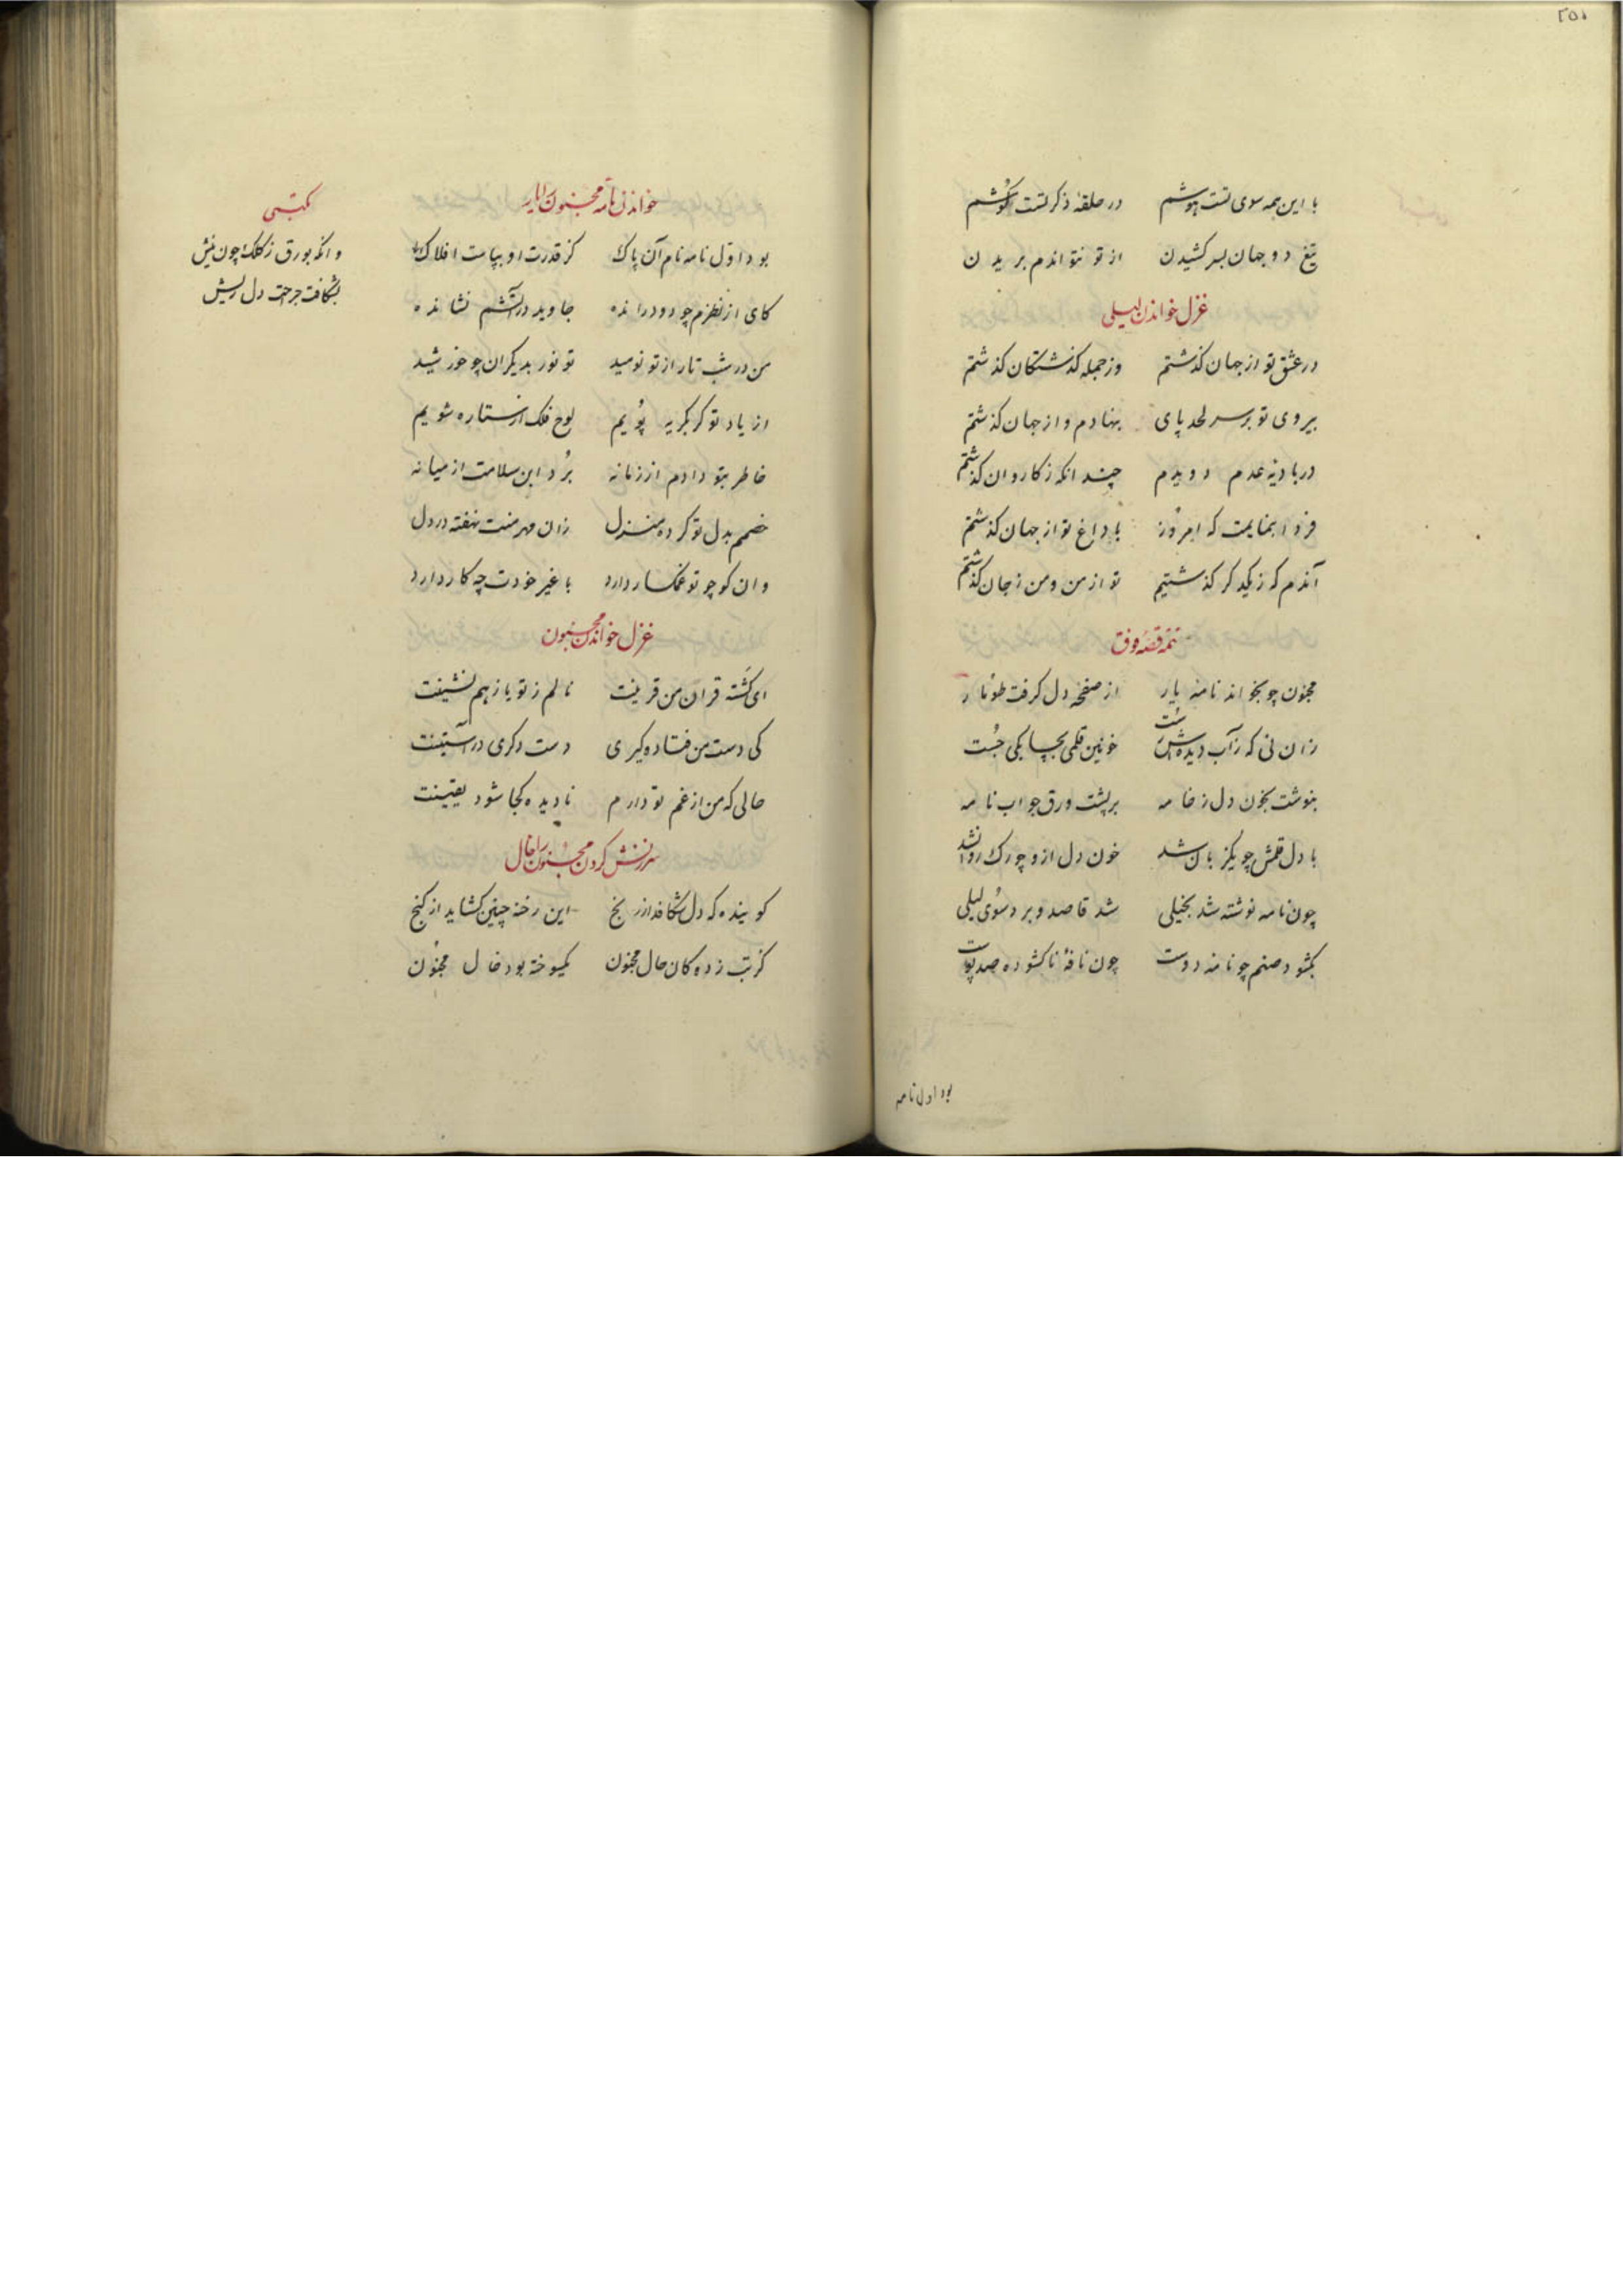 ۲۵۱
با این همه سوی تست هوشم در حلقهٔ ذکر تست گوشم
تیغ دو جهان بسر کشیدن از تو نتوانم بریدن
غزل خواندن لیلی
در عشق تو از جهان گذشتم وز جمله گذشتگان گذشتم
بیروی تو بر سر لحد پای بنهادم و از جهان گذشتم
در بادیه عدم دویدم چندانکه ز کاروان گذشتم
فردا بنمایمت که امروز با داغ تو از جهان گذشتم
آندم که ز یکدگر گذشتیم تو از من و من ز جان گذشتم
تتمه قصه فوق
مجنون چو بخواند نامه یار از صفحه دل گرفت طومار
زان نی که ز آب دیده‌اش شست خونین قلمی بچابکی جست
بنوشت بخون دل ز خامه بر پشت ورق جواب نامه
با دل قلمش چو یکزبان شد خون دل ازو چو رگ روان شد
چون نامه نوشته شد بخیلی شد قاصد و برد سوی لیلی
بگشود صنم چو نامه دوست چون نافهٔ ناگشوده صد پوست
بود اول نامه
خواندن نامه مجنون لیلی را
بود اول نامه نام آن پاک کز قدرت او بپاست افلاک
کای از نظرم چو دود رانده جاوید در آتشم نشانده
من در شب تار از تو نومید تو نور بدیگران چو خورشید
از یاد تو گر بگریه پویم لوح فلک از ستاره شویم
خاطر بتو دادم از زمانه بُرد این سلامت از میانه
خصمم بدل تو کرده منزل زان مهر منت نهفته در دل
وان کو چو تو غمگسار دارد با غیر خودت چه کار دارد
غزل خواندن مجنون
ای گشته قران من قرینت نالم ز تو یا ز هم نشینت
کی دست من فتاده گیری دست دگری در آستینت
حالی که من از غم تو دارم نادیده کجا شود یقینت
سرزنش کردن مجنون را خال
گوینده که دل شکافد از رنج این رخنه چنین گشاید از گنج
کز تب زده کان حال مجنون میسوخته بود خال مجنون
مکتبی
وانگه بورق ز کلک چون نیش
بشکافت جراحت دل ریش